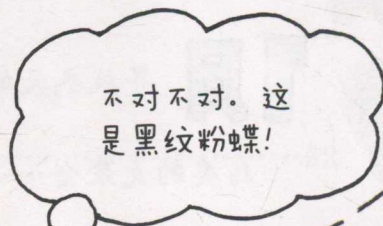 不对不对。这
是黑纹粉蝶!